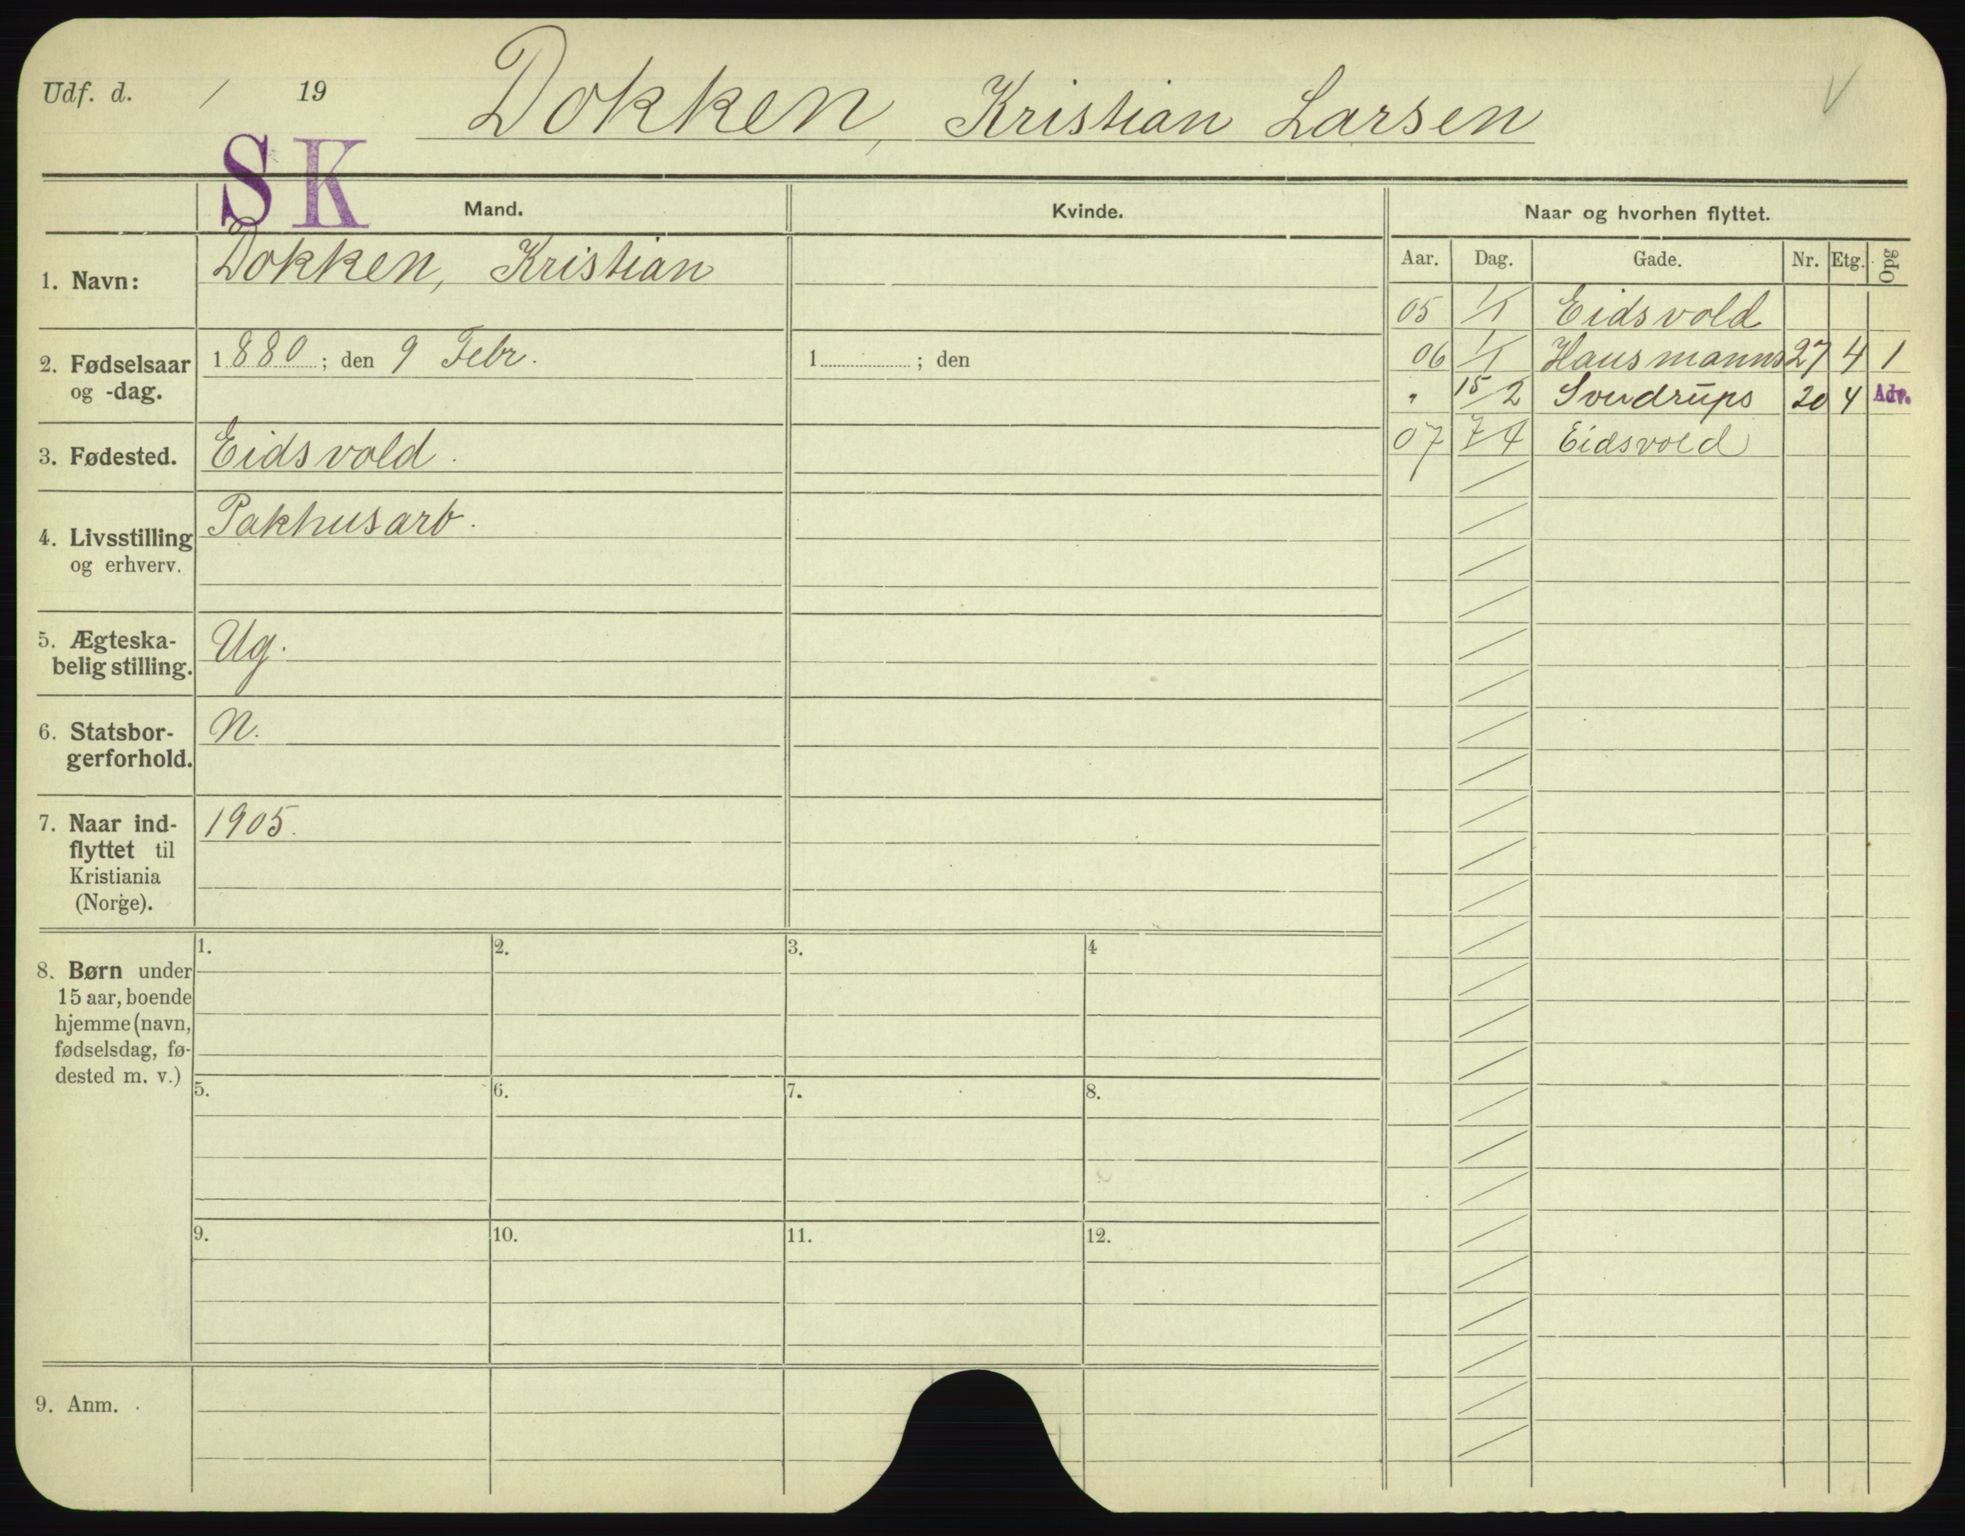 Udf. d. / 19
Dokken, Kristian Larsen
SK
Mand.
Kvinde.
Naar og hvorhen flyttet.
Aar. Dag. Gade. Nr. Etg. Opg
1. Navn:
Dokken, Kristian
2. Fødselsaar
og -dag.
1880; den 9 Febr.
1 ; den
3. Fødested.
Eidsvold.
4. Livsstilling
og erhverv.
Pakhusarb.
5. Ægteska-
belig stilling.
Ug.
6. Statsbor-
gerforhold.
N.
7. Naar ind-
flyttet til
Kristiania
(Norge).
1905.
8. Børn under
15 aar, boende
hjemme (navn,
fødselsdag, fø-
dested m. v.)
1. 2. 3. 4
5. 6. 7. 8.
9. 10. 11. 12.
9. Anm.
05 1/1 Eidsvold
06 1/1 Hausmanns 27 4 1
" 15/2 Sverdrups 20 4 Adr.
07 7/4 Eidsvold